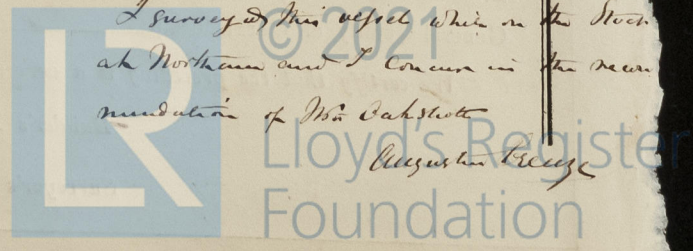 I surveyed this vessel when on the Stock
at Northam and I concur in the recom
mendation of Mr Oakshott
Augustin Creuze
© 2021
LR
Lloyd's Register
Foundation